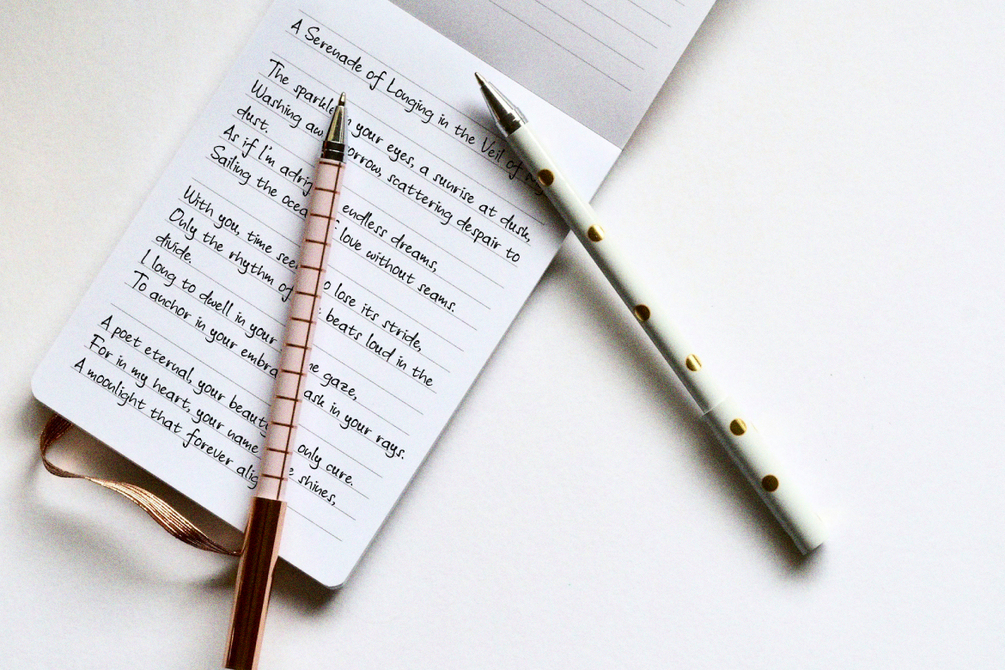 A Serenade of Longing in the Veil of
The sparkle in your eyes, a sunrise at dusk,
Washing away sorrow, scattering despair to
dust.
As if I'm adrift endless dreams,
Sailing the ocean of love without seams.
With you, time seems to lose its stride,
Only the rhythm of beats loud in the
divide.
I long to dwell in your gaze,
To anchor in your embrace, bask in your rays.
A poet eternal, your beauty only cure.
For in my heart, your name shines,
A moonlight that forever